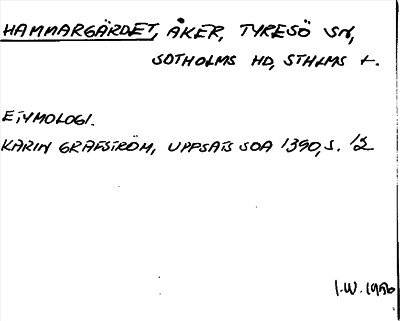 HAMMARGÄRDET, ÅKER, TYRESÖ SN,
SOTHOLMS HD, STHLMS L.
ETYMOLOGI.
KARIN GRAFSTRÖM, UPPSATS SOA 1390, S. 12
I.W. 1996